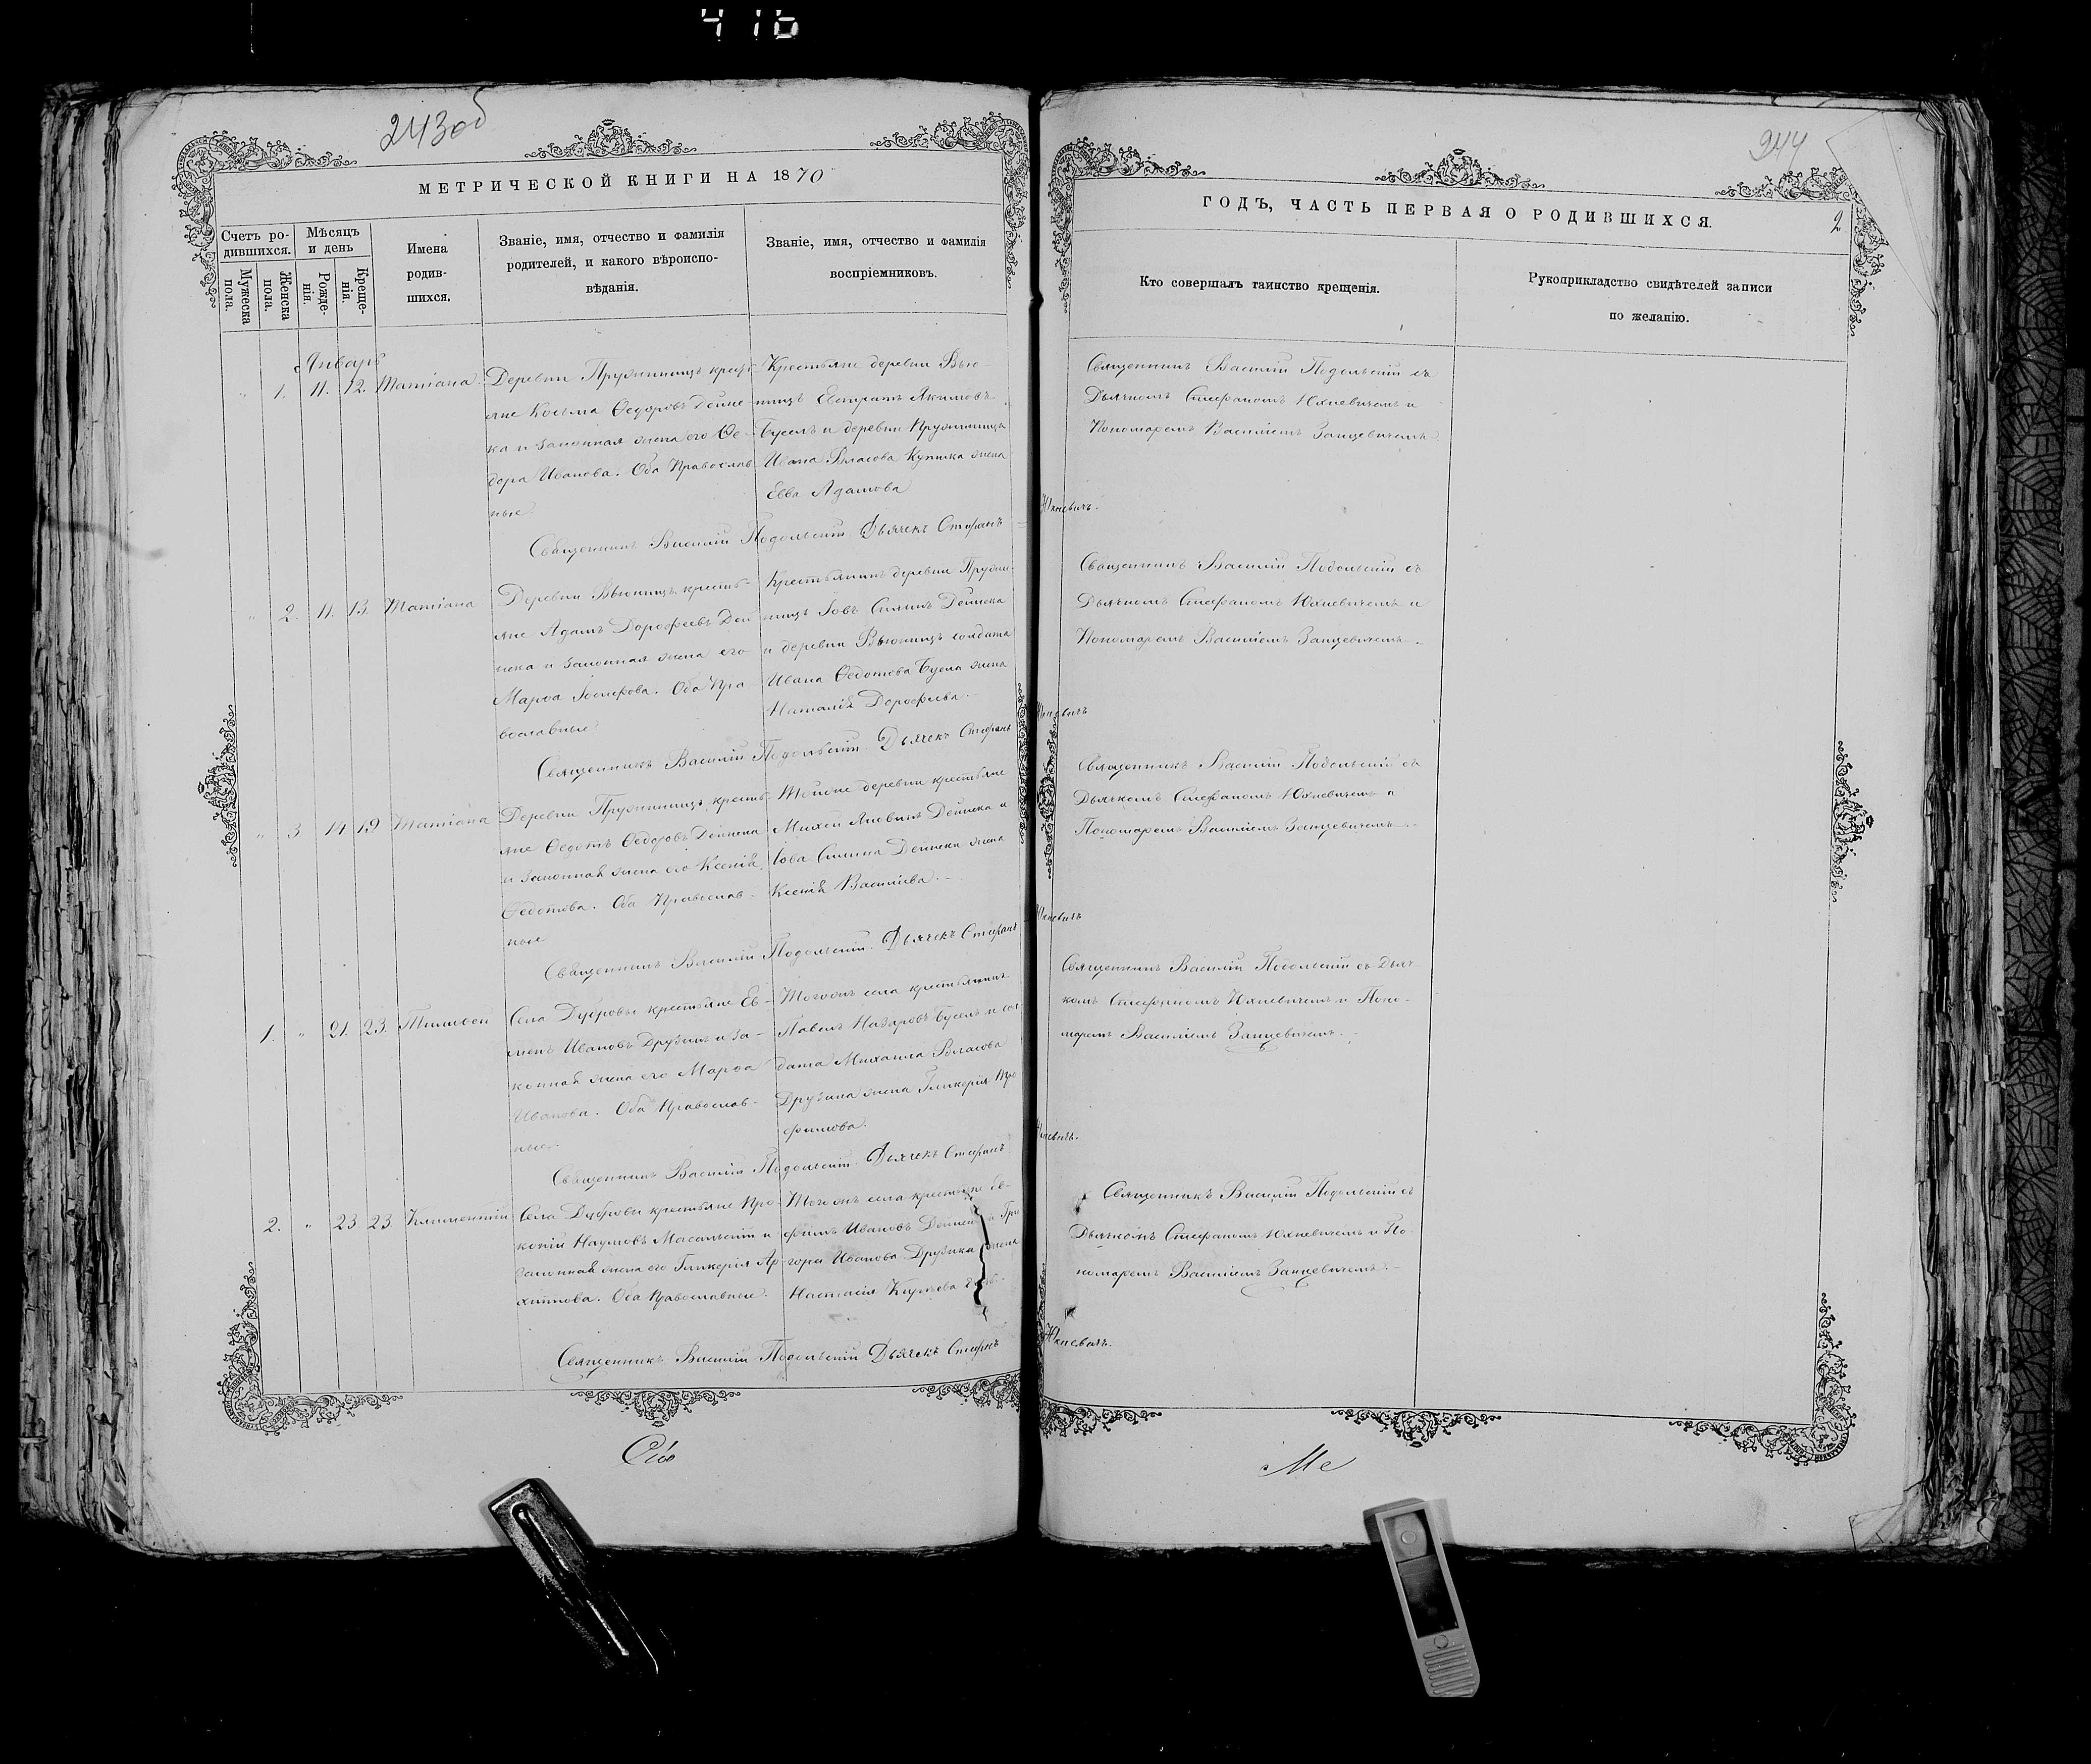 416
243об
МЕТРИЧЕСКОЙ КНИГИ НА 1870
Счетъ ро-
дившихся.
Мужеска
пола.
Женска
пола.
Мѣсяцъ
и день
Рожде-
нія.
Креще-
нія.
Имена
родив-
шихся.
Званіе, имя, отчество и фамилія
родителей, и какого вѣроиспо-
вѣданія.
Званіе, имя, отчество и фамилія
воспріемниковъ.
Январь
" 1. 11. 12. Татіана.
Деревни Прузиницъ кресть-
яне Косьма Ѳедоровъ Дейне-
ка и законная жена его Ѳе-
дора Иванова. Оба Православ-
ные
Крестьяне деревни Вью-
ницъ Евстратъ Якимовъ
Буселъ и деревни Прузиницъ
Ивана Власова Купика жена
Евва Адамова
Священникъ Василій Подольскій Дьячекъ Стефанъ
" 2. 11. 13. Татіана
Деревни Вьюницъ кресть-
яне Адамъ Дороѳеевъ Дей
нека и законная жена его
Марѳа Іосифова. Оба Пра
вославные
Крестьянинъ деревни Прузи-
ницъ Іовъ Силинъ Дейнека
и деревни Вьюницъ солдата
Ивана Ѳедотова Бусла жена
Наталія Дороѳеева.
Священникъ Василій Подольскій Дьячекъ Стефанъ
" 3 14 19 Татіана
Деревни Прузиницъ кресть-
яне Ѳедотъ Ѳедоровъ Дейнека
и законная жена его Ксенія
Ѳедотова. Оба Православ-
ные
Тойже деревни крестьяне
Михей Дейнека и
Іова Силина Дейнеки жена
Ксенія Васильева.
Священникъ Василій Подольскій. Дьячекъ Стефанъ
1. " 21. 23. Тимоѳей
Села Дубровы крестьяне Ев-
менъ Ивановъ Друзикъ и за-
конная жена его Марѳа
Иванова. Оба Православ-
ные.
Тогожъ села крестьянинъ
Павелъ Назаровъ Буселъ и сол-
дата Михаила Власова
Друзика жена Гликерія Тро
фимова.
Священникъ Василій Подольскій Дьячекъ Стефанъ
2. " 23 23 Климентій
Села Дубровы крестьяне Про-
копій Наумовъ Масальскій и
законная жена его Гликерія Ар-
хипова. Оба Православные.
Тогожъ села крестьяне Ев-
фимъ Ивановъ Дейнека и Гри
горія Иванова Друзика жена
Настасія
Священникъ Василій Подольскій Дьячекъ Стефанъ
944
2
ГОДЪ, ЧАСТЬ ПЕРВАЯ О РОДИВШИХСЯ.
Кто совершалъ таинство крещенія.
Рукоприкладство свидѣтелей записи
по желанію.
Священникъ Василій Подольскій съ
Дьячкомъ Стефаномъ Юхневичемъ и
Пономаремъ Василіемъ Занцевичемъ.
Юхневичъ.
Священникъ Василій Подольскій съ
Дьячкомъ Стефаномъ Юхневичемъ и
Пономаремъ Василіемъ Занцевичемъ.
Юхневичъ
Священникъ Василій Подольскій съ
Дьячкомъ Стефаномъ Юхневичемъ и
Пономаремъ Василіемъ Занцевичемъ.
Юхневичъ
Священникъ Василій Подольскій съ Дьяч-
комъ Стефаномъ Юхневичемъ и Поно-
маремъ Василіемъ Занцевичемъ.
Юхневичъ.
Священникъ Василій Подольскій съ
Дьячкомъ Стефаномъ Юхневичемъ и По-
номаремъ Василіемъ Занцевичемъ.
Юхневичъ.
Ме